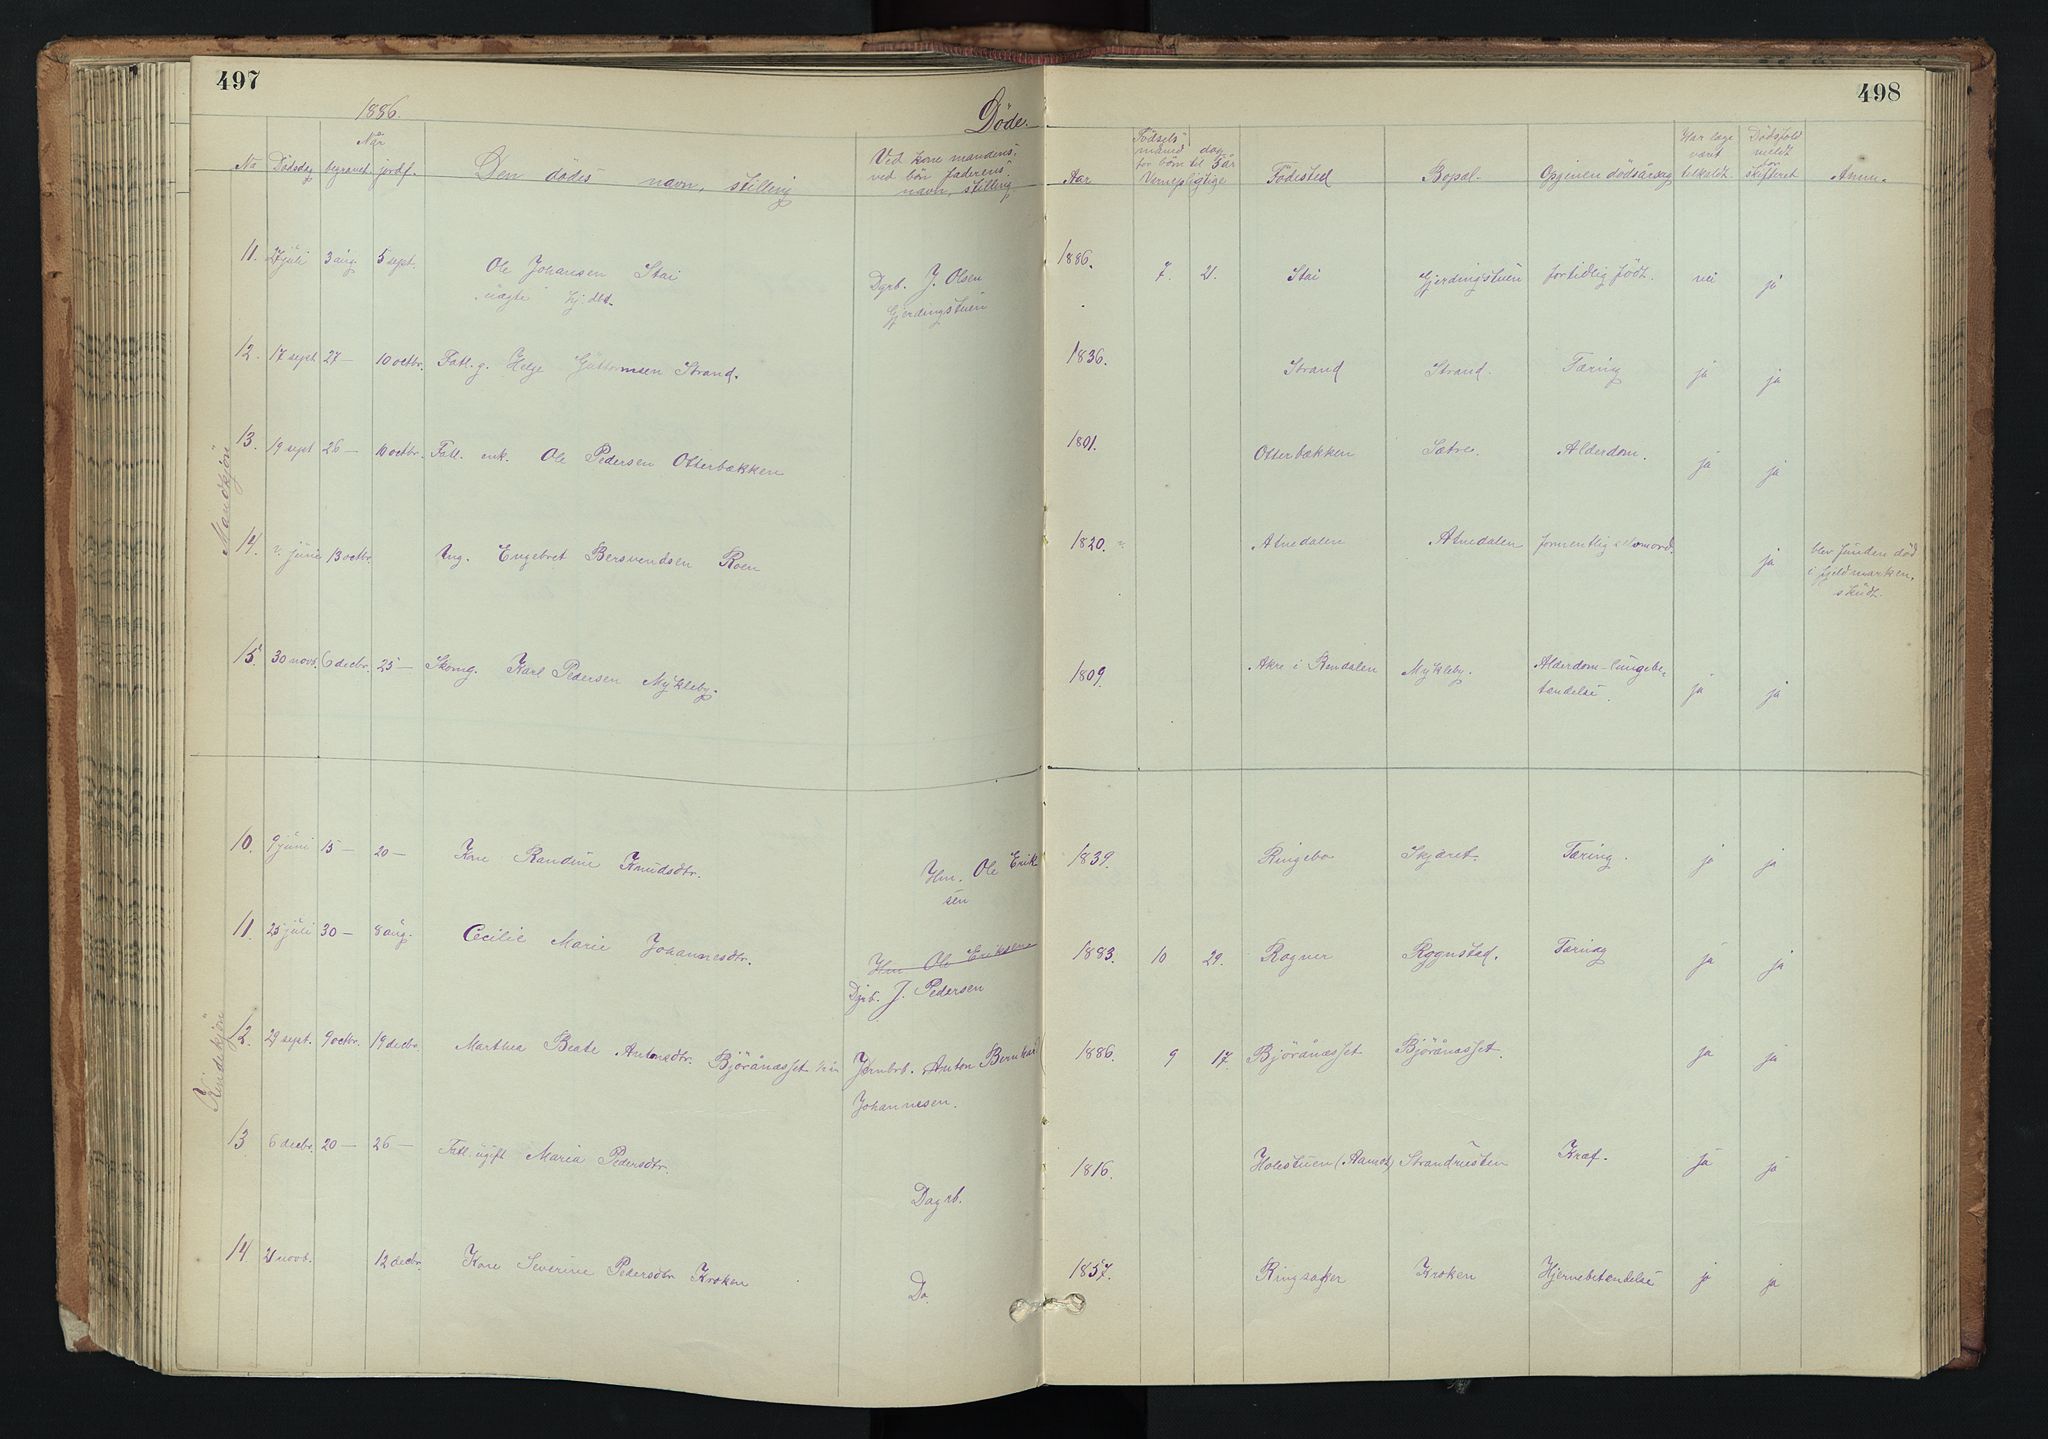 497
498
1886.
Døde.
No
Dødsdag
Når
begravet
jordf.
Den dødes navn, stilling
Ved kone mandens, ved børn faderens navn, stilling
Aar
Fødsels- måned dag for børn til 5 år Vernepligtige
Fødested
Bopæl.
Opgiven dødsårsag
Har læge været tilkaldt
Dødsfald meldt for skifteret
Anm.
Mandkjøn
11. 27 juli 3 aug. 5 sept. Ole Johansen Stai Dgrb. J. Olsen 1886. 7. 21. Stai Gjerdingstuen fortidlig født. nei ja
uægte hj. dbt. Gjerdingstuen
12. 17 sept 27 — 10 octbr. Fatl. g. Helge Guttormsen Strand. 1836. Strand Strand. Tæring ja ja
13. 19 sept 26 — 10 octbr. Fatl. enk. Ole Pedersen Otterbækken 1801. Otterbækken Sætre. Alderdom. ja ja
14. ? juni 13 octbr. Ung. Engebret Bersvendsen Roen 1820. ? Atnedalen Atnedalen formentlig selvmord ja blev funden død
i fjeldmarken.
skudt.
15. 30 novb. 6 decbr. 25 — Skomg. Karl Pedersen Mykleby. 1809. Akre i Rendalen Mykleby. Alderdom - lungebe-
tændelse. ja ja
Kvindekjøn
10. 9 juni 15 — 20 — Kone Randine Knudsdtr. Hm. Ole Erik 1839. Ringebo Skjæret. Tæring. ja ja
sen
11. 25 juli 30 — 8 aug. Cecilie Marie Johannesdtr. Hm Ole Eriksen 1883. 10 29. Rogner Rognstad. Tæring ja ja
Dgrb. J. Pedersen
12. 29 sept. 9 octbr. 19 decbr. Marthea Beate Antonsdtr. Bjørånæsset Jernbrb. Anton Bernhard 1886. 9 17. Bjørånæsset Bjørånæsset. ja ja
Johannesen.
13 6 decbr. 20 — 26 — Fatl. ugift Maria Pedersdtr. 1816. Holestuen (Aamot) Strandrusten Kræf. ja ja
Dagrb.
14 21 novb. 12 decbr. Kone Severine Pedersdtr Kroken 1857. Ringsaker Kroken Hjernebetændelse ja ja
Do.